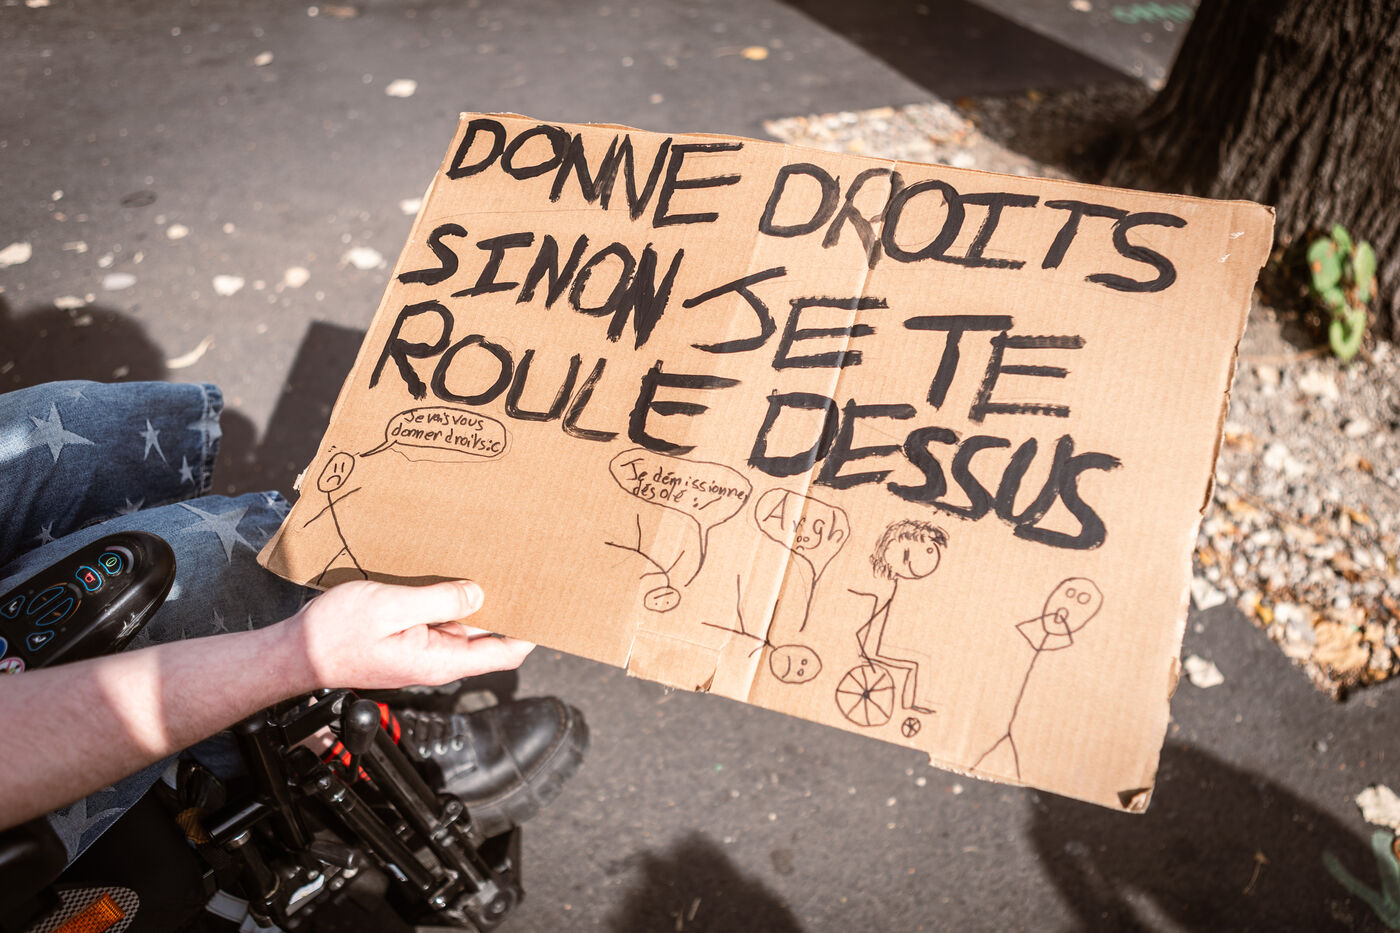 DONNE DROITS
SINON JE TE
ROULE DESSUS
Je vais vous
donner droits :c
Je démissionne
désolé :,(
Argh